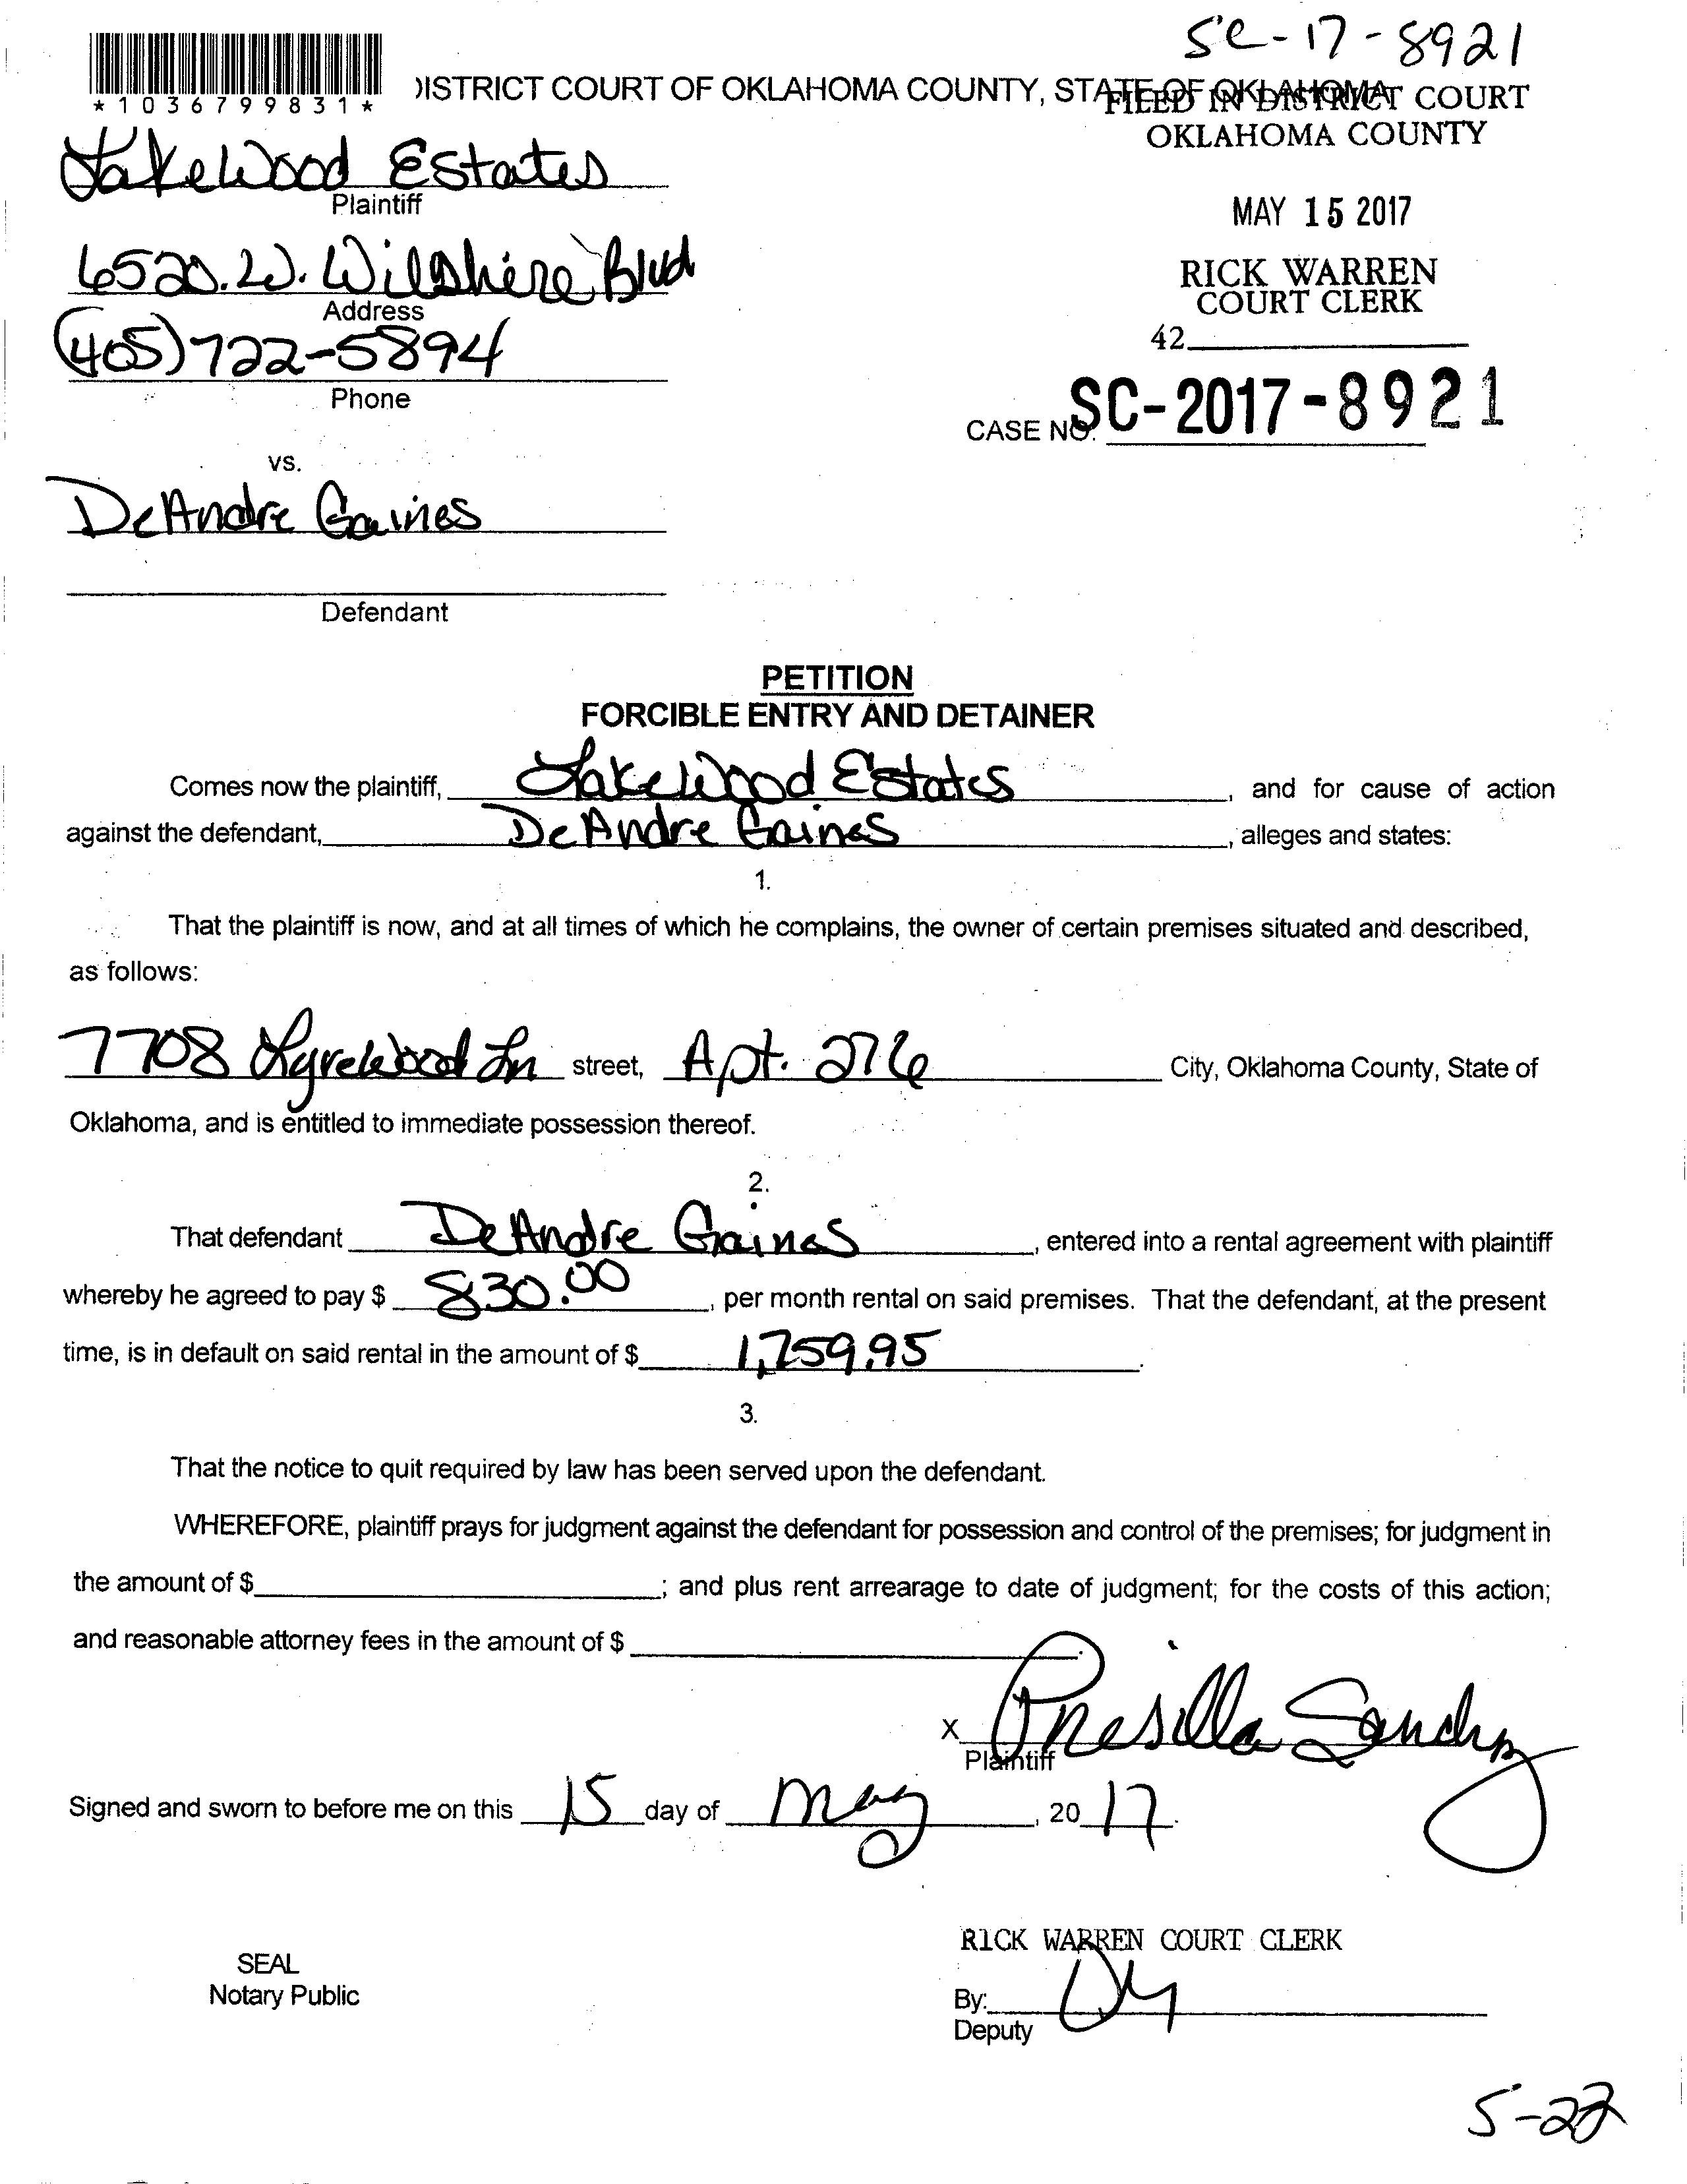 SC-17-8921
*1036799831*
DISTRICT COURT OF OKLAHOMA COUNTY, STATE OF OKLAHOMA
FILED IN DISTRICT COURT
OKLAHOMA COUNTY
Lakewood Estates
Plaintiff
MAY 15 2017
6520. W. Wilshire Blvd
Address
RICK WARREN
COURT CLERK
(405)722-5894
Phone
42
CASE NO. SC-2017-8921
vs.
DeAndre Gaines
Defendant
PETITION
FORCIBLE ENTRY AND DETAINER
Comes now the plaintiff, Lakewood Estates, and for cause of action
against the defendant, DeAndre Gaines, alleges and states:
1.
That the plaintiff is now, and at all times of which he complains, the owner of certain premises situated and described,
as follows:
7708 Lyrewood Ln street, Apt. 276 City, Oklahoma County, State of
Oklahoma, and is entitled to immediate possession thereof.
2.
That defendant DeAndre Gaines, entered into a rental agreement with plaintiff
whereby he agreed to pay $ 830.00, per month rental on said premises. That the defendant, at the present
time, is in default on said rental in the amount of $ 1,759.95.
3.
That the notice to quit required by law has been served upon the defendant.
WHEREFORE, plaintiff prays for judgment against the defendant for possession and control of the premises; for judgment in
the amount of $ ; and plus rent arrearage to date of judgment; for the costs of this action;
and reasonable attorney fees in the amount of $ .
X Presilla Sanchez
Plaintiff
Signed and sworn to before me on this 15 day of May, 2017.
RICK WARREN COURT CLERK
SEAL
Notary Public
By:
Deputy
5-22